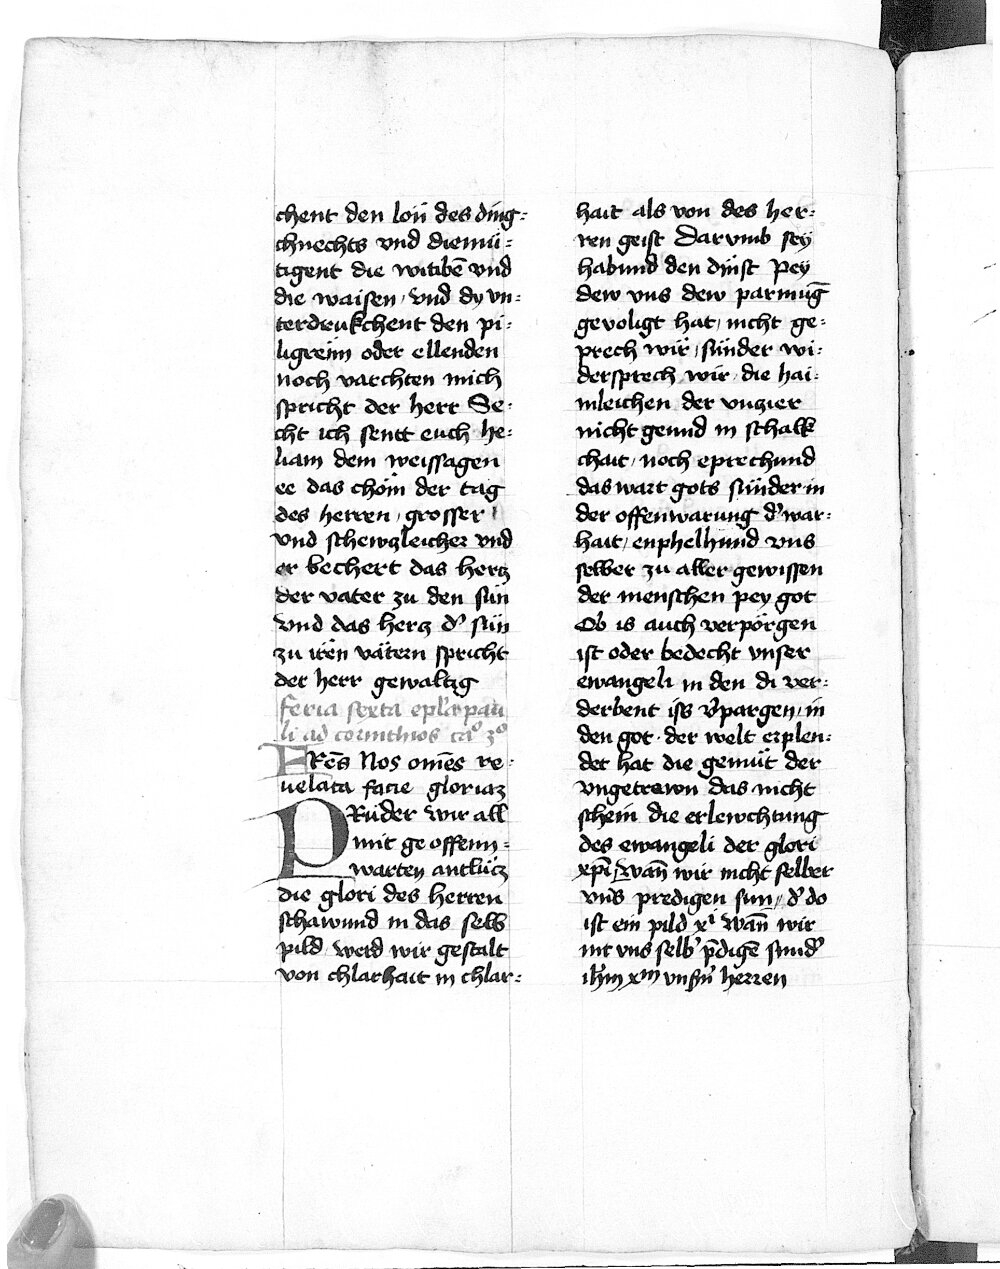 chent den lon des ding⸗
chnechts vnd diemü⸗
tigent die witibē vnd
die waisen / vnd dy vn⸗
terdrukchent den pi⸗
ligreim oder ellenden
noch varchten mich
spricht der herr Se⸗
cht ich sentt euch he⸗
liam dem weissagen
ee das chöm der tag
des herren / grosser /
vnd schewzleicher vnd
er bechert das hertz
der vater zu den sün
vnd das hercz dˀ sün
zu iren vätern spricht
der herr gewaltig
feria sexta epl'a pau
li ad corinthios ca° 3°
FRēs Nos om̄es re⸗
uelata facie gloriaz
PRüder wir all
mit geoffenn⸗
warten antlücz
die glori des herren
schawund in das selb
pild / werd wir gestalt
von chlarhait in chlar⸗
hait als von des her⸗
ren geist Darvmb sey
habund den dinst pey
dew vns dew parmūg
gevoligt hat / nicht ge⸗
prech wir / sünder wi⸗
dersprech wir / die hai⸗
mleichen der vnzier
nicht geund in schalk
chait / noch eprechund
das wart gots sünder in
der offenwarung dˀ war⸗
hait / enphelhund vns
selber zu aller gewissen
der menschen pey got
Ob is auch verporgen
ist oder bedecht vnser
ewangeli in den di ver⸗
derbent iss vˀpargen / in
den got · der welt erplen⸗
det hat die gemüt der
vngetrewn das nicht
schein die erlewchtung
des ewangeli der glori
xp̄i / wan̄ wir nicht selber
vns predigen sun / dˀ do
ist ein pild xi wan̄ wir
nit vns selbˀ p̄digē sundˀ
ih̄m xm vnsn̄ herren